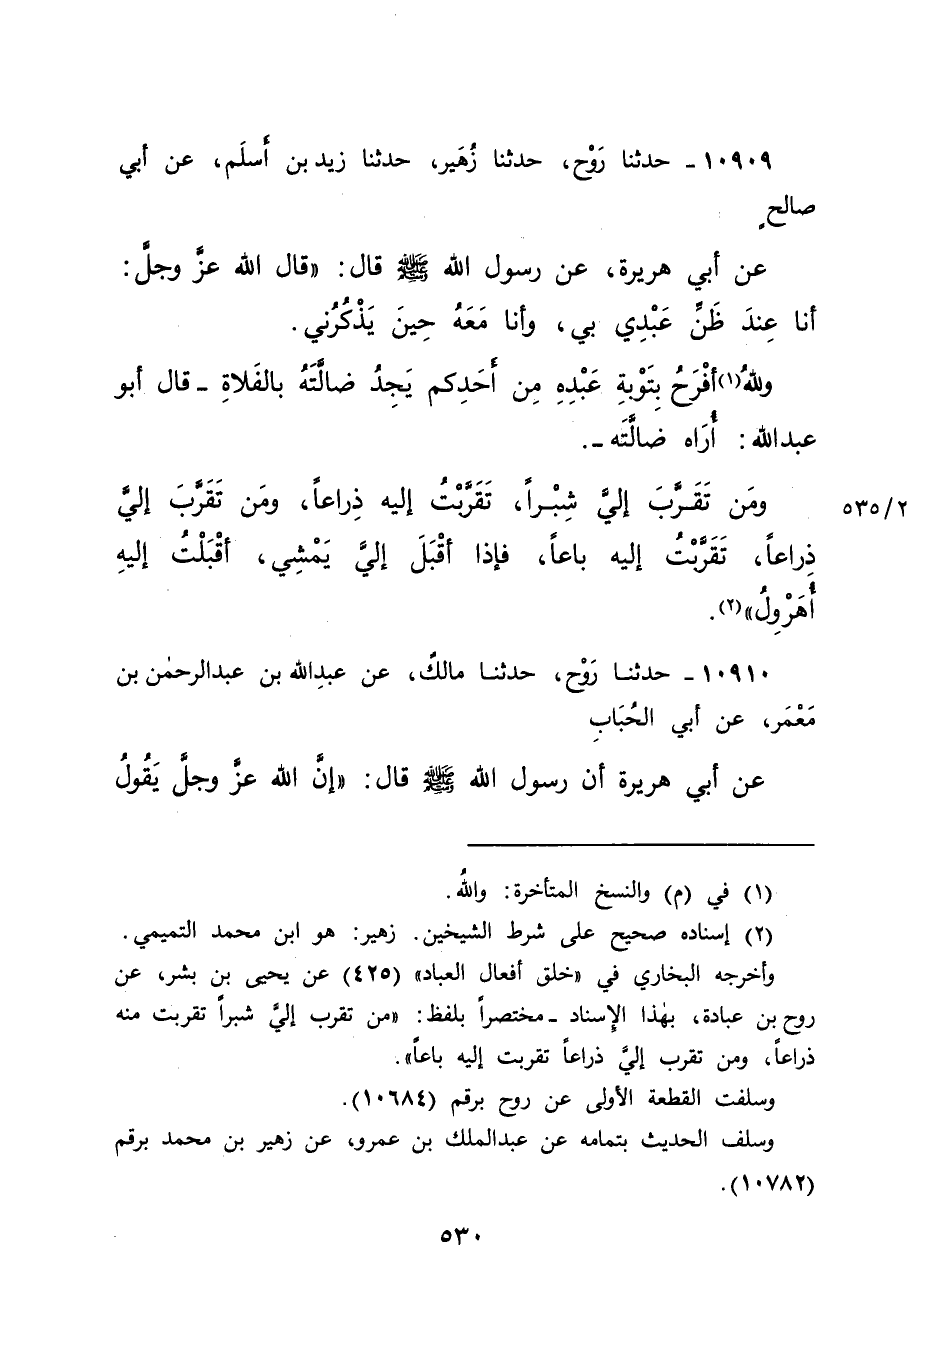 ١٠٩٠٩ ـ حدثنا رَوْح، حدثنا زُهَير، حدثنا زيد بن أَسلَم، عن أبي
صالحٍ
عن أبي هريرة، عن رسول الله ﷺ قال: «قال الله عزَّ وجلَّ:
أنا عِندَ ظَنِّ عَبْدِي بي، وأنا مَعَهُ حِينَ يَذْكُرُني.
وللهُ(١) أفْرَحُ بِتَوْبةِ عَبْدِهِ مِن أَحَدِكم يَجِدُ ضالَّتَهُ بالفَلاةِ ـ قال أبو
عبدالله: أُرَاه ضالَّتَه ـ.
ومَن تَقَـرَّبَ إليَّ شِبْـراً، تَقَرَّبْتُ إليه ذِراعاً، ومَن تَقَرَّبَ إليَّ
٥٣٥/٢
ذِراعاً، تَقَرَّبْتُ إليه باعاً، فإذا أقْبَلَ إليَّ يَمْشِي، أقْبَلْتُ إليهِ
أُهَرْوِلُ»(٢).
١٠٩١٠ ـ حدثنـا رَوْح، حدثنـا مالكٌ، عن عبدِالله بن عبدالرحمٰن بن
مَعْمَر، عن أبي الحُبَابِ
عن أبي هريرة أن رسول الله ﷺ قال: «إنَّ الله عزَّ وجلَّ يَقُولُ
(١) في (م) والنسخ المتأخرة: واللهُ.
(٢) إسناده صحيح على شرط الشيخين. زهير: هو ابن محمد التميمي.
وأخرجه البخاري في «خلق أفعال العباد» (٤٢٥) عن يحيى بن بشر، عن
روح بن عبادة، بهٰذا الإسناد ـ مختصراً بلفظ: «من تقرب إليَّ شبراً تقربت منه
ذراعاً، ومن تقرب إليَّ ذراعاً تقربت إليه باعاً».
وسلفت القطعة الأولى عن روح برقم (١٠٦٨٤).
وسلف الحديث بتمامه عن عبدالملك بن عمرو، عن زهير بن محمد برقم
(١٠٧٨٢).
٥٣٠